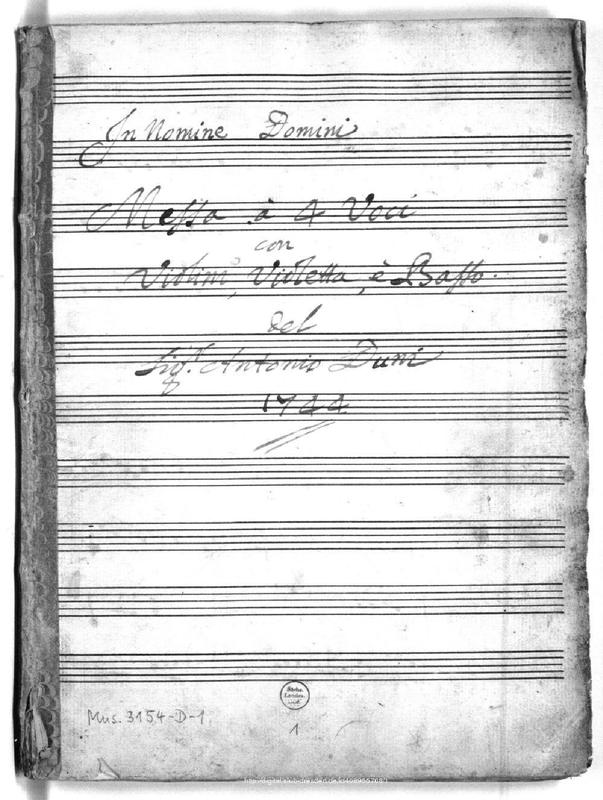 In Nomine Domini
Messa à 4 Voci
con
Violini, Violetta, è Basso.
Del
Sig.r Antonio Duni
1744
Sächs.
Landes-
Bibl.
Mus. 3154-D-1.
1